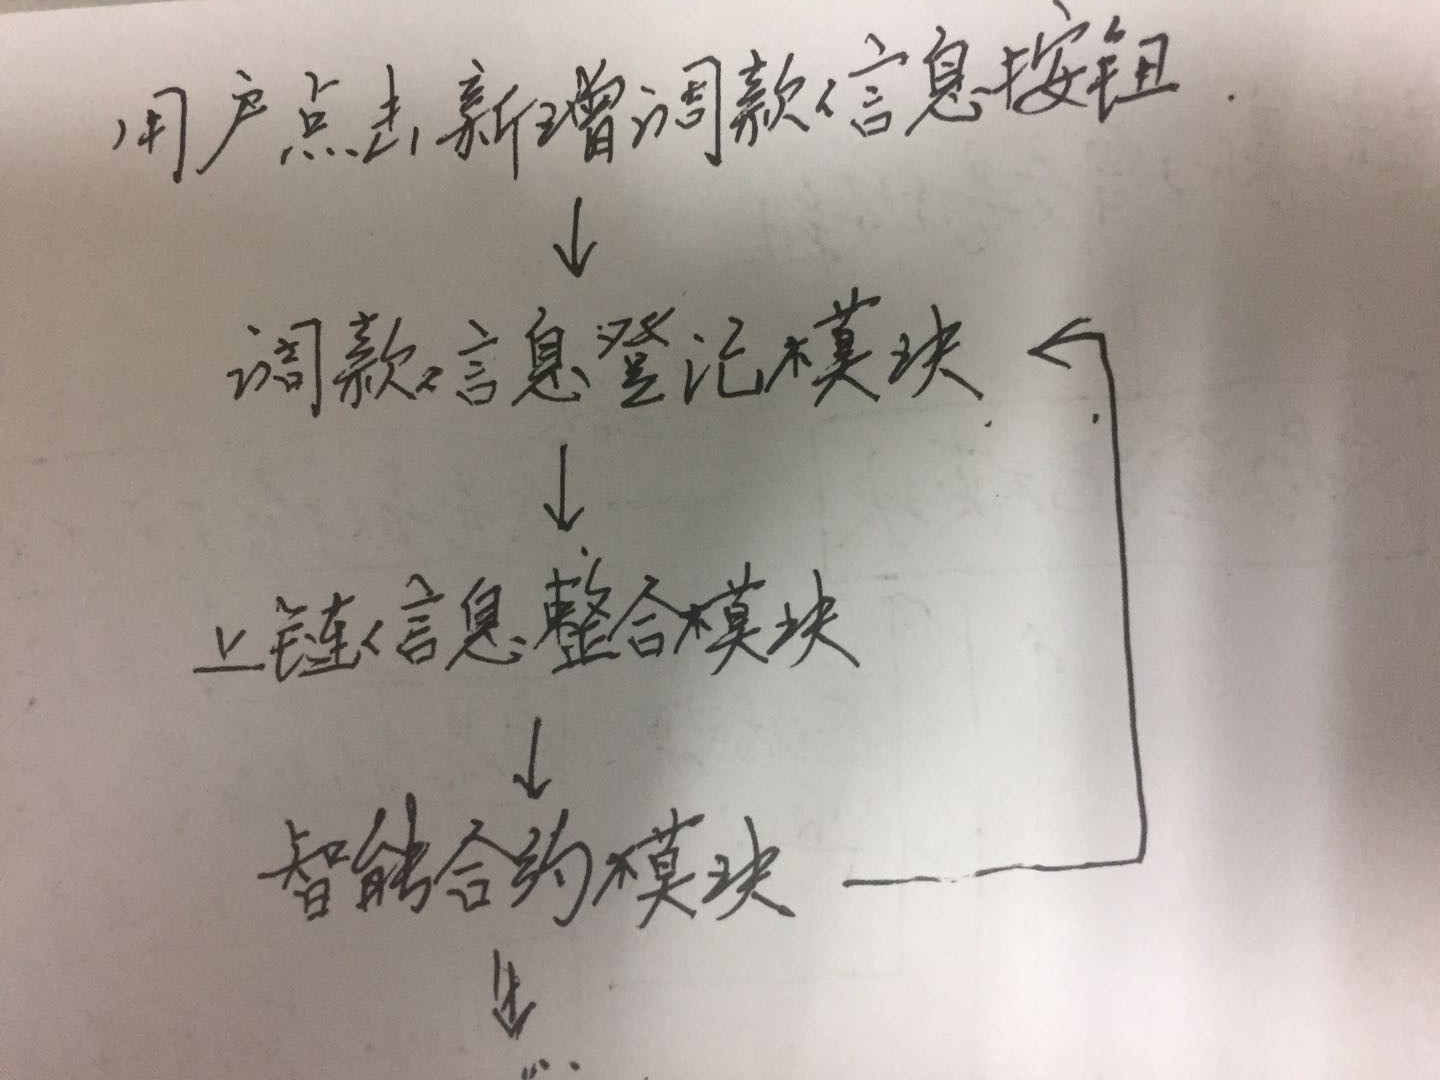 用户点击新增调款信息按钮
调款信息登记模块
上链信息整合模块
智能合约模块